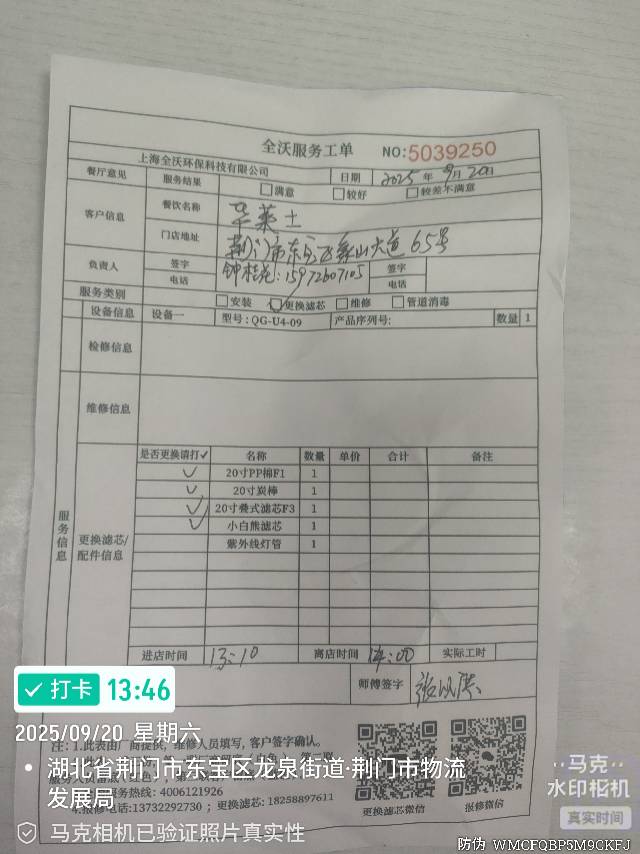 全沃服务工单 NO:5039250
上海全沃环保科技有限公司 日期 2025 年 9月20日
餐厅意见 服务结果 满意 较好 较差不满意
客户信息 餐饮名称 华莱士
门店地址 荆门市东宝区象山大道65号
负责人 签字 钟桂花:15972607105 签字
电话 电话
服务类别 安装 更换滤芯 维修 管道消毒
设备信息 设备一 型号:QG-U4-09 产品序列号: 数量 1
检修信息
维修信息
服务信息
更换滤芯/配件信息
是否更换请打✓ 名称 数量 单价 合计 备注
✓ 20寸PP棉F1 1
✓ 20寸炭棒 1
✓ 20寸叠式滤芯F3 1
✓ 小白熊滤芯 1
紫外线灯管 1
进店时间 13:10 离店时间 14:00 实际工时
师傅签字
注:1.此表由厂商提供,维修人员填写,客户签字确认。
服务热线:4006121926
4.报修电话:13732292730 ; 更换滤芯:18258897611 更换滤芯微信 报修微信
打卡 13:46
2025/09/20 星期六
湖北省荆门市东宝区龙泉街道·荆门市物流
发展局
马克相机已验证照片真实性
马克
水印相机
真实时间
防伪 WMCFQBP5M9CKFJ